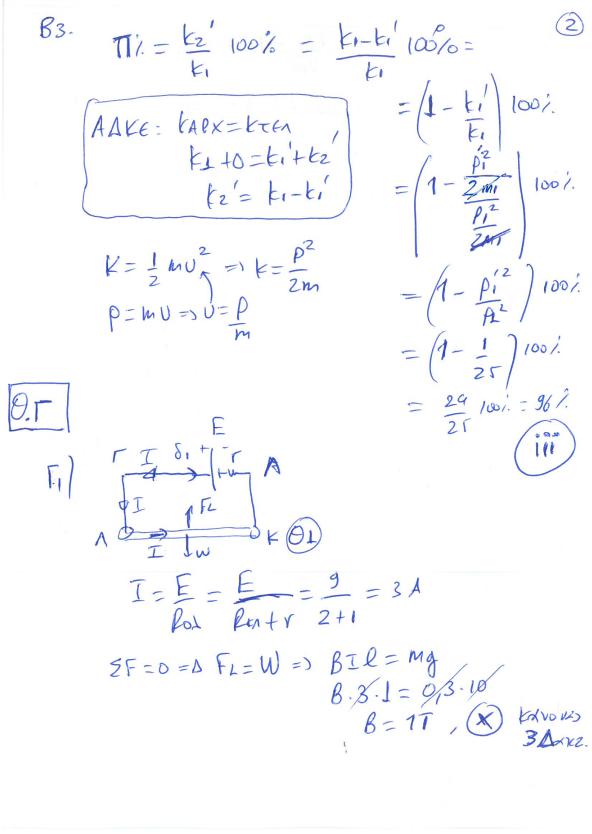 ②
Β3. Π% = k₂'/k₁ 100% = (k₁-k₁')/k₁ 100% =
= (1 - k₁'/k₁) 100%
ΑΔΚΕ: kαρχ = kτελ
k₁+0 = k₁'+k₂'
k₂' = k₁-k₁'
= (1 - (p₁'²/2m₁)/(p₁²/2m₁)) 100%
K = 1/2 mυ² => k = p²/2m
p = mυ => υ = p/m
= (1 - p₁'²/p₁²) 100%
= (1 - 1/25) 100%
= 24/25 100% = 96%
iii
Θ.Γ
Γ₁)
E
Γ I δ₁ + - r Δ
I FL
Λ I w K Θ1
I = E/Rολ = E/(Rκλ+r) = 9/(2+1) = 3 A
ΣF=0 => FL = W => BIl = mg
B·3·1 = 0,3·10
B = 1T, ⊗ κανόνας
3Δακτ.